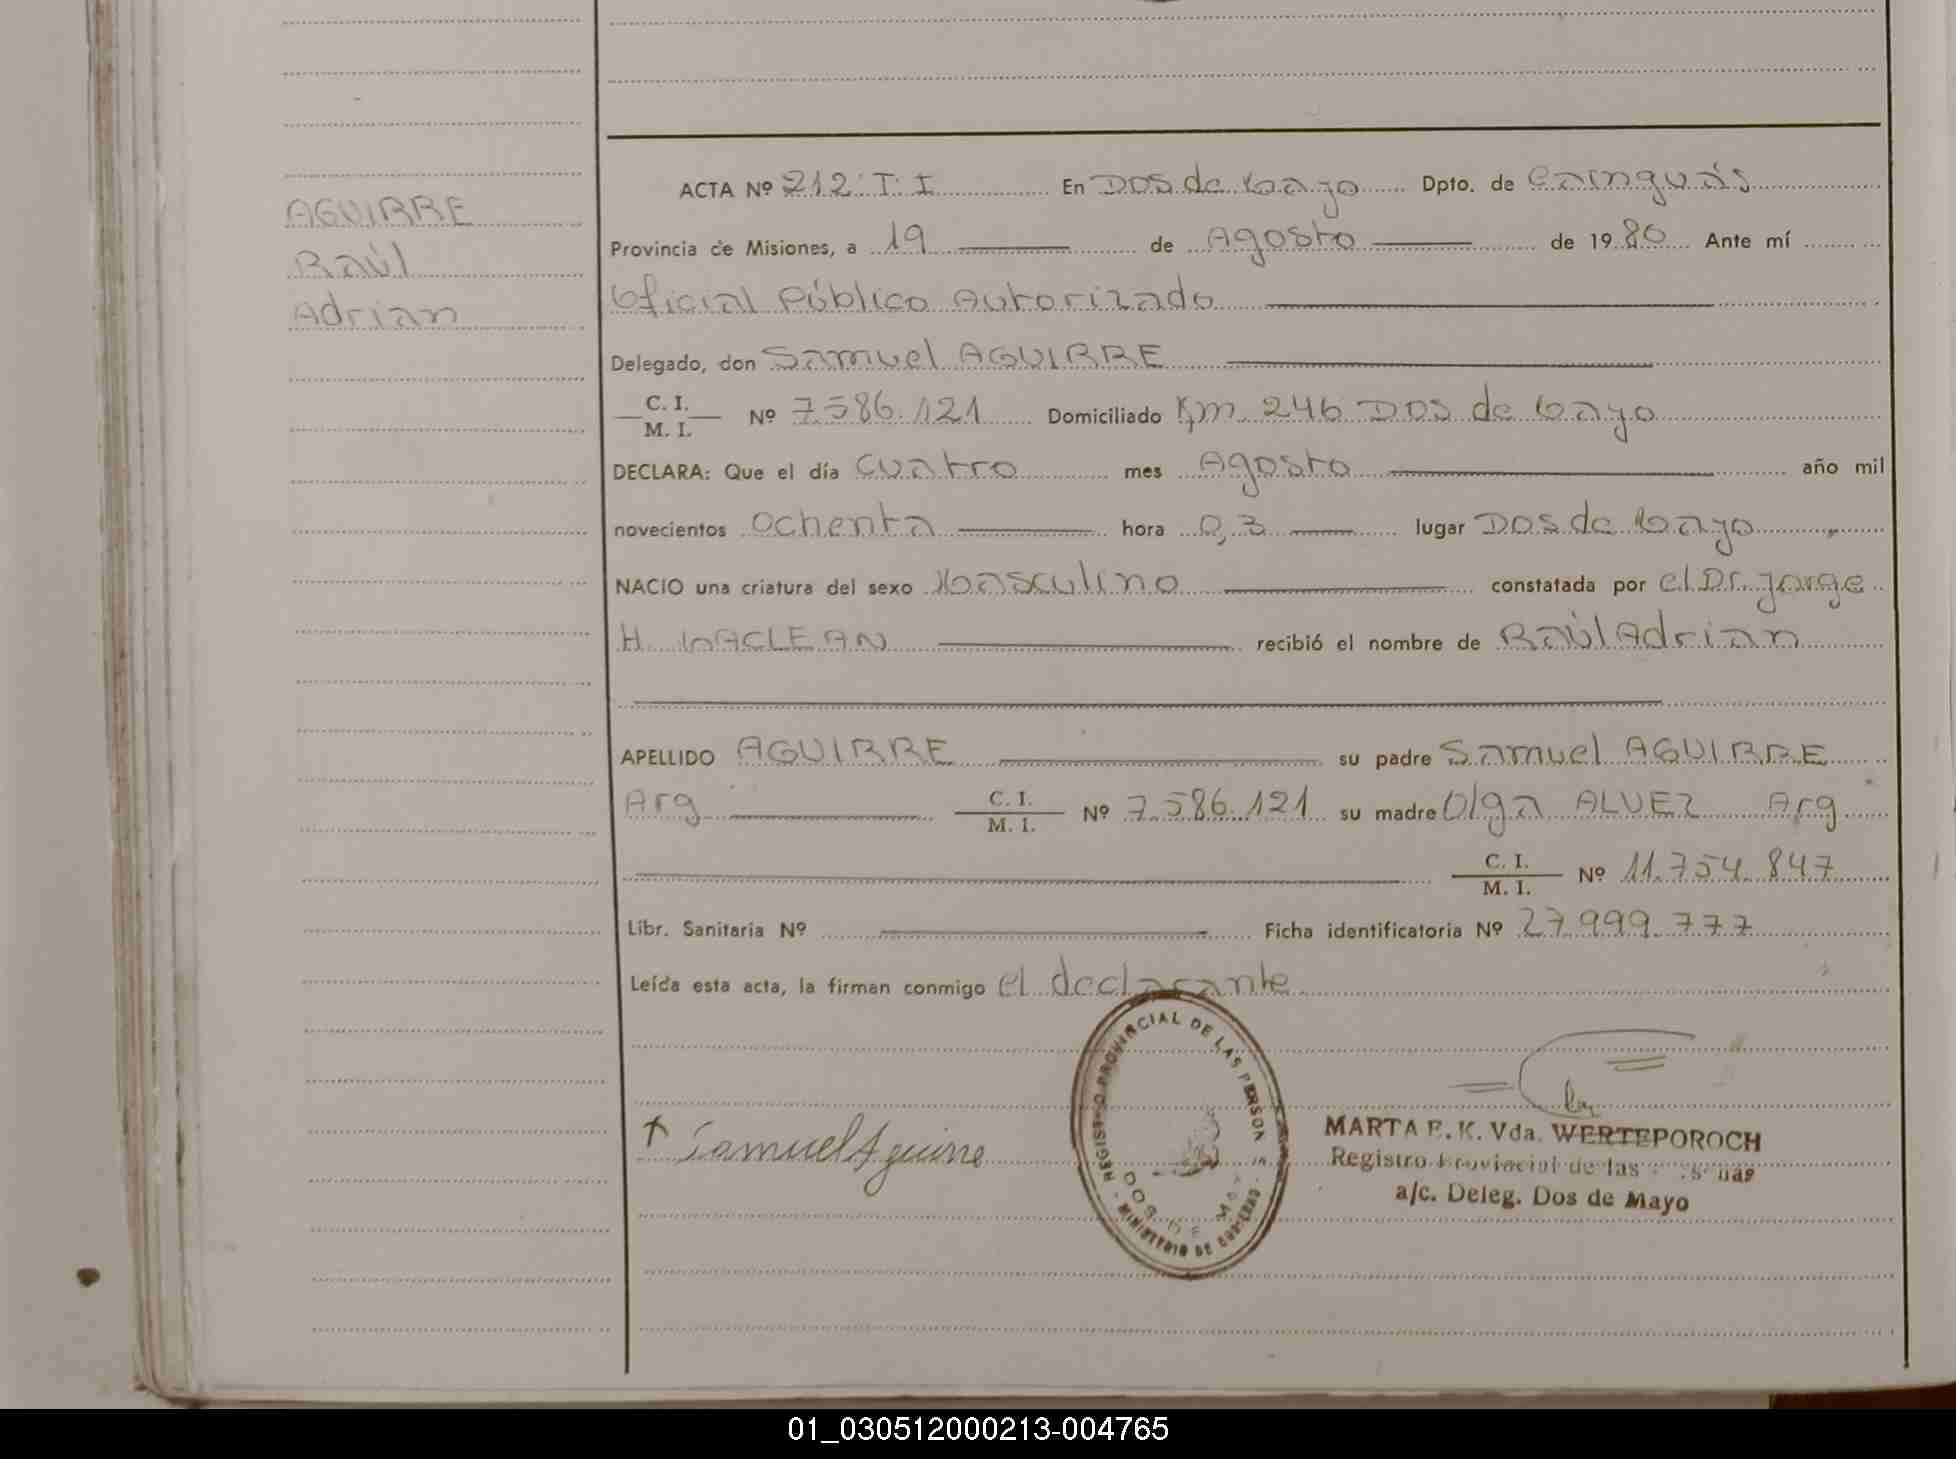 AGUIRRE
Raúl
Adrian
ACTA Nº 212 T. I En Dos de Mayo Dpto. de Cainguás
Provincia de Misiones, a 19 de Agosto de 1980 Ante mí
Oficial Público Autorizado
Delegado, don Samuel AGUIRRE
C. I.
M. I. Nº 7.586.121 Domiciliado Km 246 Dos de Mayo
DECLARA: Que el día cuatro mes Agosto año mil
novecientos ochenta hora 0,3 lugar Dos de Mayo
NACIO una criatura del sexo Masculino constatada por el Dr. Jorge
H. MACLEAN recibió el nombre de Raúl Adrian
APELLIDO AGUIRRE su padre Samuel AGUIRRE
Arg C. I. M. I. Nº 7.586.121 su madre Olga ALVEZ Arg
C. I. M. I. Nº 11.754.847
Libr. Sanitaria Nº Ficha identificatoria Nº 27.999.777
Leída esta acta, la firman conmigo el declarante
Samuel Aguirre
REGISTRO PROVINCIAL DE LAS PERSON
DOS DE MAY
MINISTERIO DE GOBIERNO
MARTA E. K. Vda. WERTEPOROCH
Registro Provincial de las
a/c. Deleg. Dos de Mayo
01_030512000213-004765